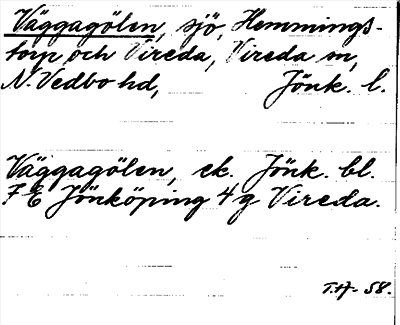 Väggagölen, sjö, Hemmings-
torp och Vireda, Vireda sn,
N. Vedbo hd, Jönk. l.
Väggagölen, ek. Jönk. bl.
7 E Jönköping 4 g Vireda.
T.H. 58.